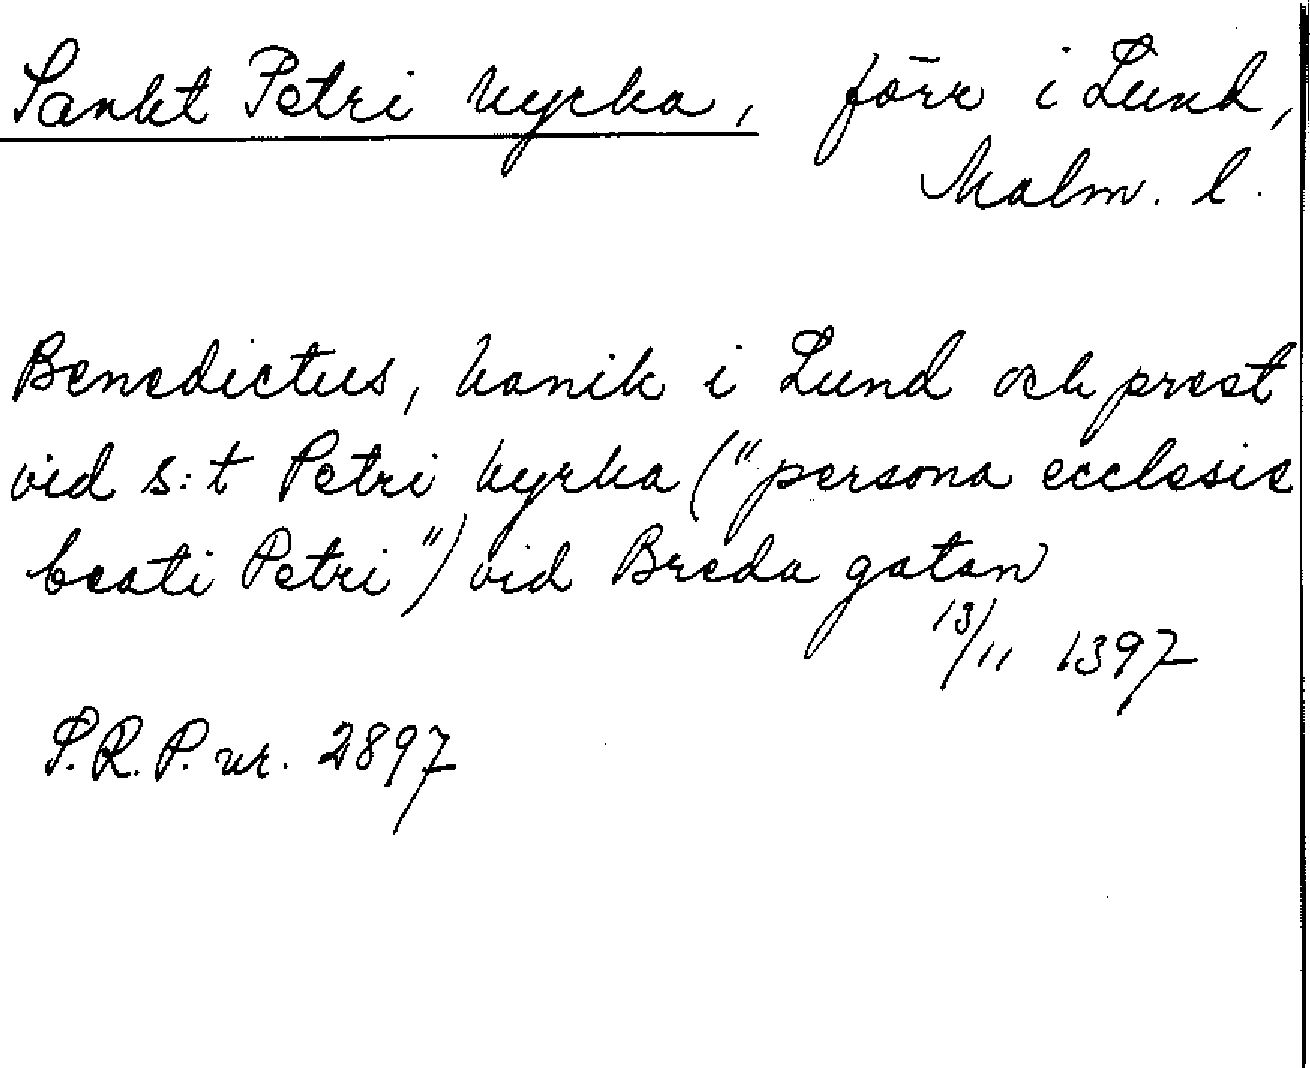 Sankt Petri kyrka, förr i Lund,
Malm. l.
Benedictus, kanik i Lund och prest
vid s:t Petri kyrka ("persona ecclesie
beati Petri") vid Breda gatan
13/11 1397
S.R.P. nr. 2897